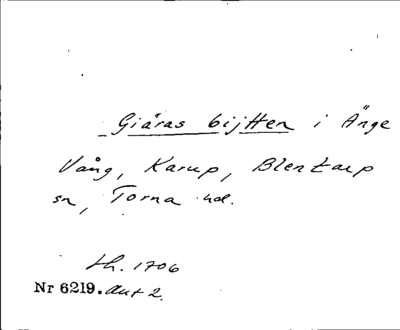 Giäras bijtten i Änge
Vång, Karup, Blentarp
sn, Torna hd.
Lh. 1706
Nr 6219. Aut 2.